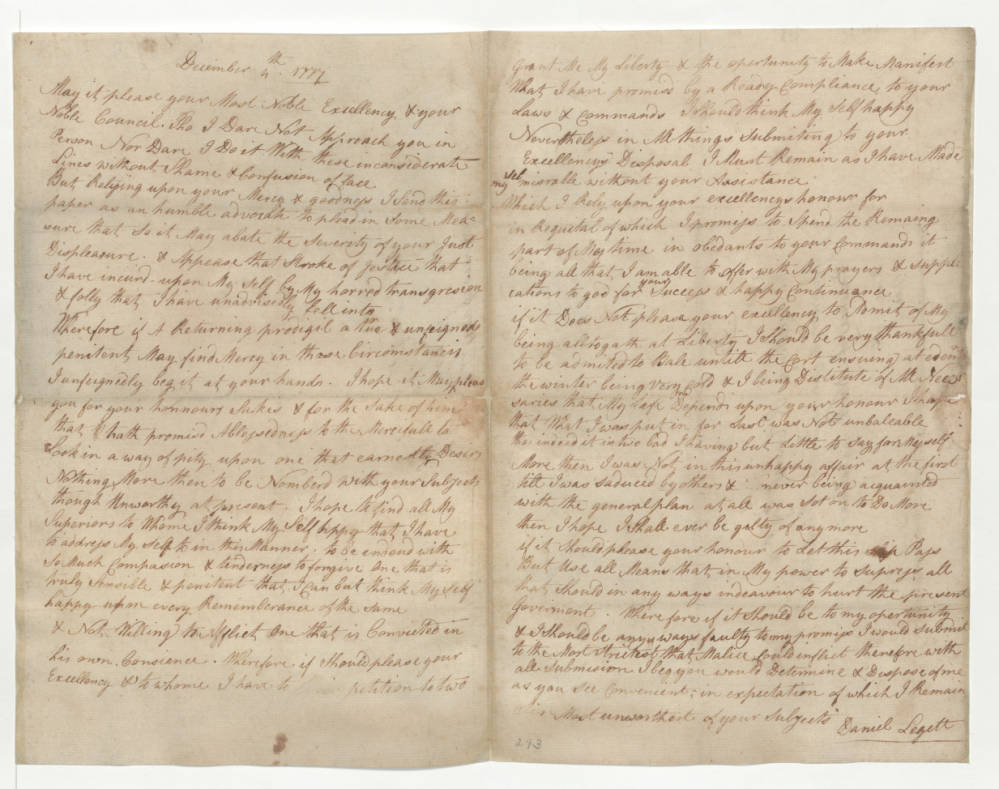 December 4th 1777
May it please your Most Noble Excellency & your
Noble Council. Tho I Dare Not Approach you in
Person Nor Dare I Do it With these inconsiderate
Lines without Shame & Confusion of face
But Relying upon your Mercy & goodness I Send this
paper as an humble advocate to plead in Some Mea
sure that So it May abate the Severity of your Just
Displeasure. & Appease that Stroke of Justice that
I have incurd upon My Self by My horred transgresion
& folly that I have unadvisedly fell into
Wherefore if A Returning prodigel a true & unfeigned
penitent May find Mercy in those Circumstancis
I unfeignedly beg it at your hands. I hope it May pleas
you for your honnours Sakes & for the Sake of him
that hath promisd A blessedness to the Mercifull to
Look in a way of pity upon one that earnestly Desirs
Nothing More then to be Nomberd with your Subjects
though Unworthy at present. I hope to find all My
Superiors to Whome I think My Self happy that I have
to address My Self to in this Manner. to be endend with
So Much Compasion & tenderness to forgive One that is
truly Sensible & penitent that I Can but think My Self
happy upon every Rememberance of the Same
& Not Willing to Afflict One that is Convicted in
his own Conscience. Wherefore if Should please your
Excellency & to whome I have to petition to two
grant Me My Liberty & the opertunity to Make Manifest
What I have promisd by a Ready Compliance to your
Laws & Commands I Should think My Self happy
Nevertheless in All things Submiting to your
Excellencys Disposal I Must Remain as I have Made
my Self misrable without your Assistance.
Which I Rely upon your excellencys honour for
in Requital of which I promiss to Spend the Remaing
part of My time in obedants to your Commands it
being all that I am able to offer with My prayers & suppli
cations to god for your Success & happy Continuance
if it Does Not please your excellency to Admit of My
being altogath at Liberty I Should be very thankfull
to be admited to Bale untill the Cort ensuing at edent
the winter being Very Cold & I being Distitute of All Nece
saries that My Life Depends upon your honour
that What I was put in for Last was Not unbaleable
tho indeed it is two bad I having but Little to Say for My self
More then I was Not in this unhappy affair at the first
till I was saduced by others & never being acquainted
with the general plan at all was Sot on to Do More
then I hope I Shall ever be galty of any more
if it Should please your honour to Let this Pass
But Use all Means that in My power to Supress all
that Should in any ways endeavour to hurt the present
Goverment. Wherefore if it Should be to my opertunity
& I Should be any ways faulty to my promiss I would Submit
to the Most Strictest that Malice Could inflict therefore with
all Submission I beg you would Determine & Dispose of me
as you See Convenient; in expectation of which I Remain
Most unworthest of your Subjects Daniel Legett
293